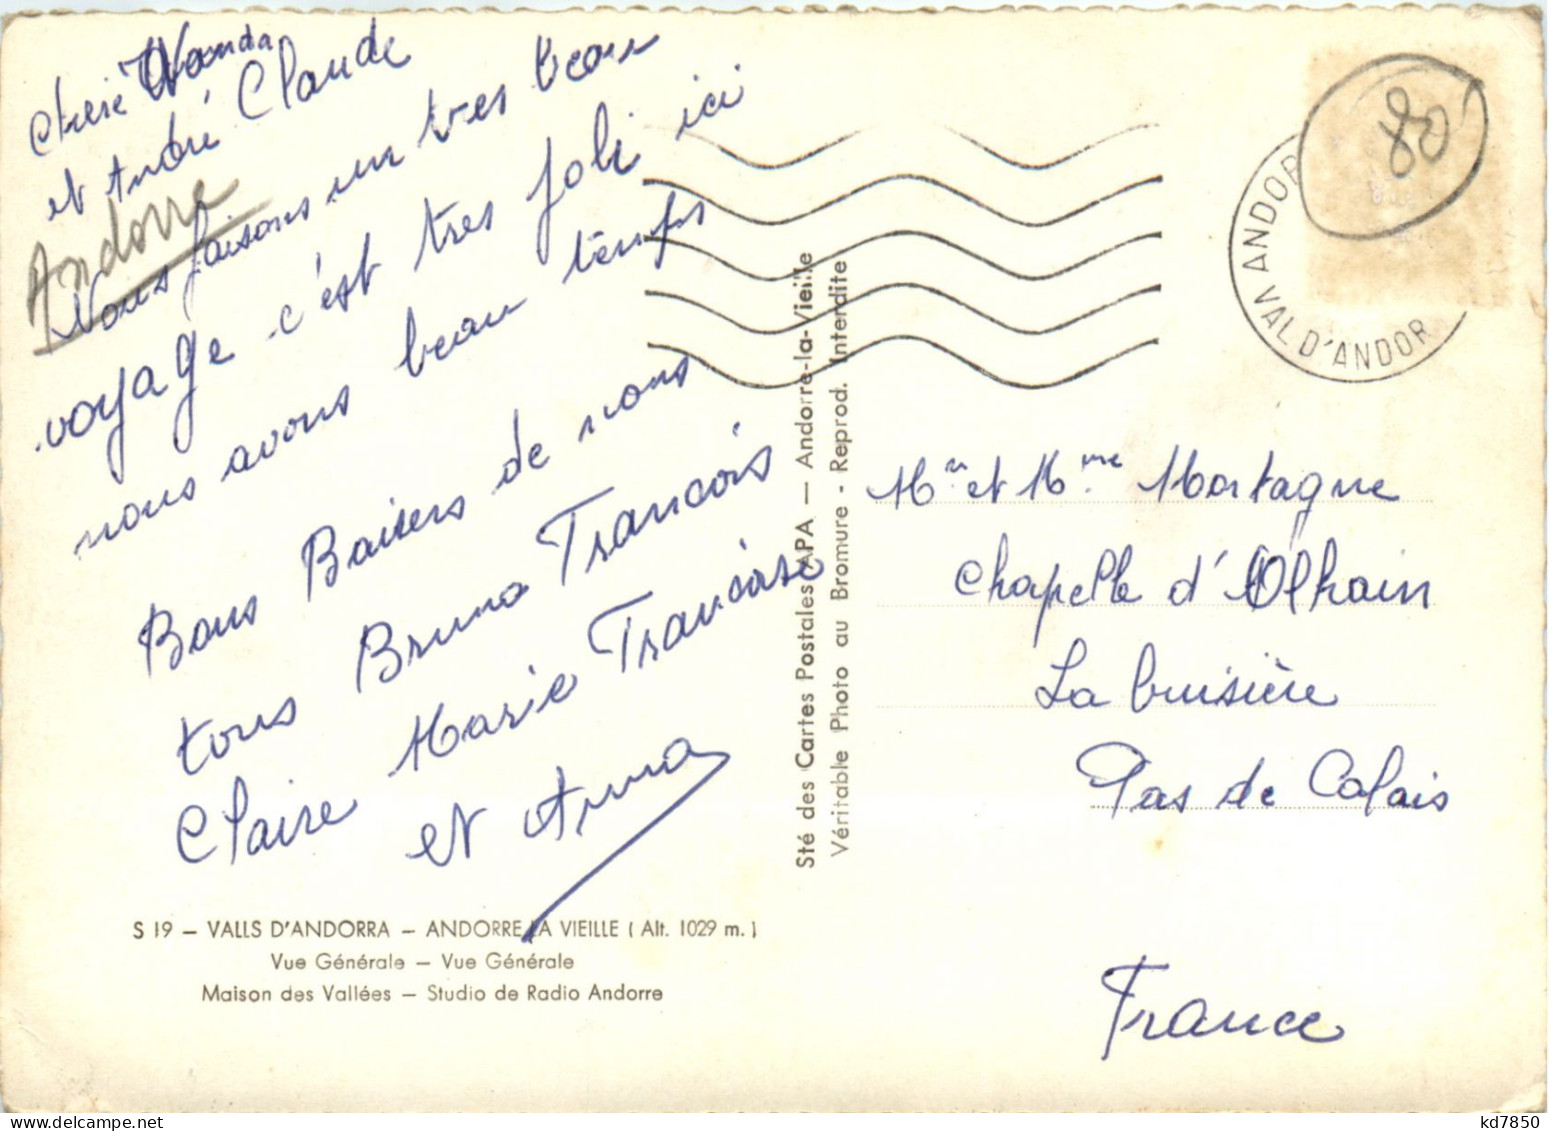 Cherie Wanda
et André Claude
Andorre
Nous faisons un tres beau
voyage c'est tres joli ici
nous avons beau temps
Bons Baisers de nous
tous Bruno Francois
Claire Marie Francoise
et Anna
S 19 – VALLS D'ANDORRA – ANDORRE LA VIEILLE ( Alt. 1029 m. )
Vue Générale – Vue Générale
Maison des Vallées – Studio de Radio Andorre
Sté des Cartes Postales APA — Andorre-la-Vieille
Véritable Photo au Bromure - Reprod. Interdite
80
ANDOR
VAL D'ANDOR
Mr et Mme Mortagne
Chapelle d'Olhain
La buisière
Pas de Calais
France
kd7850